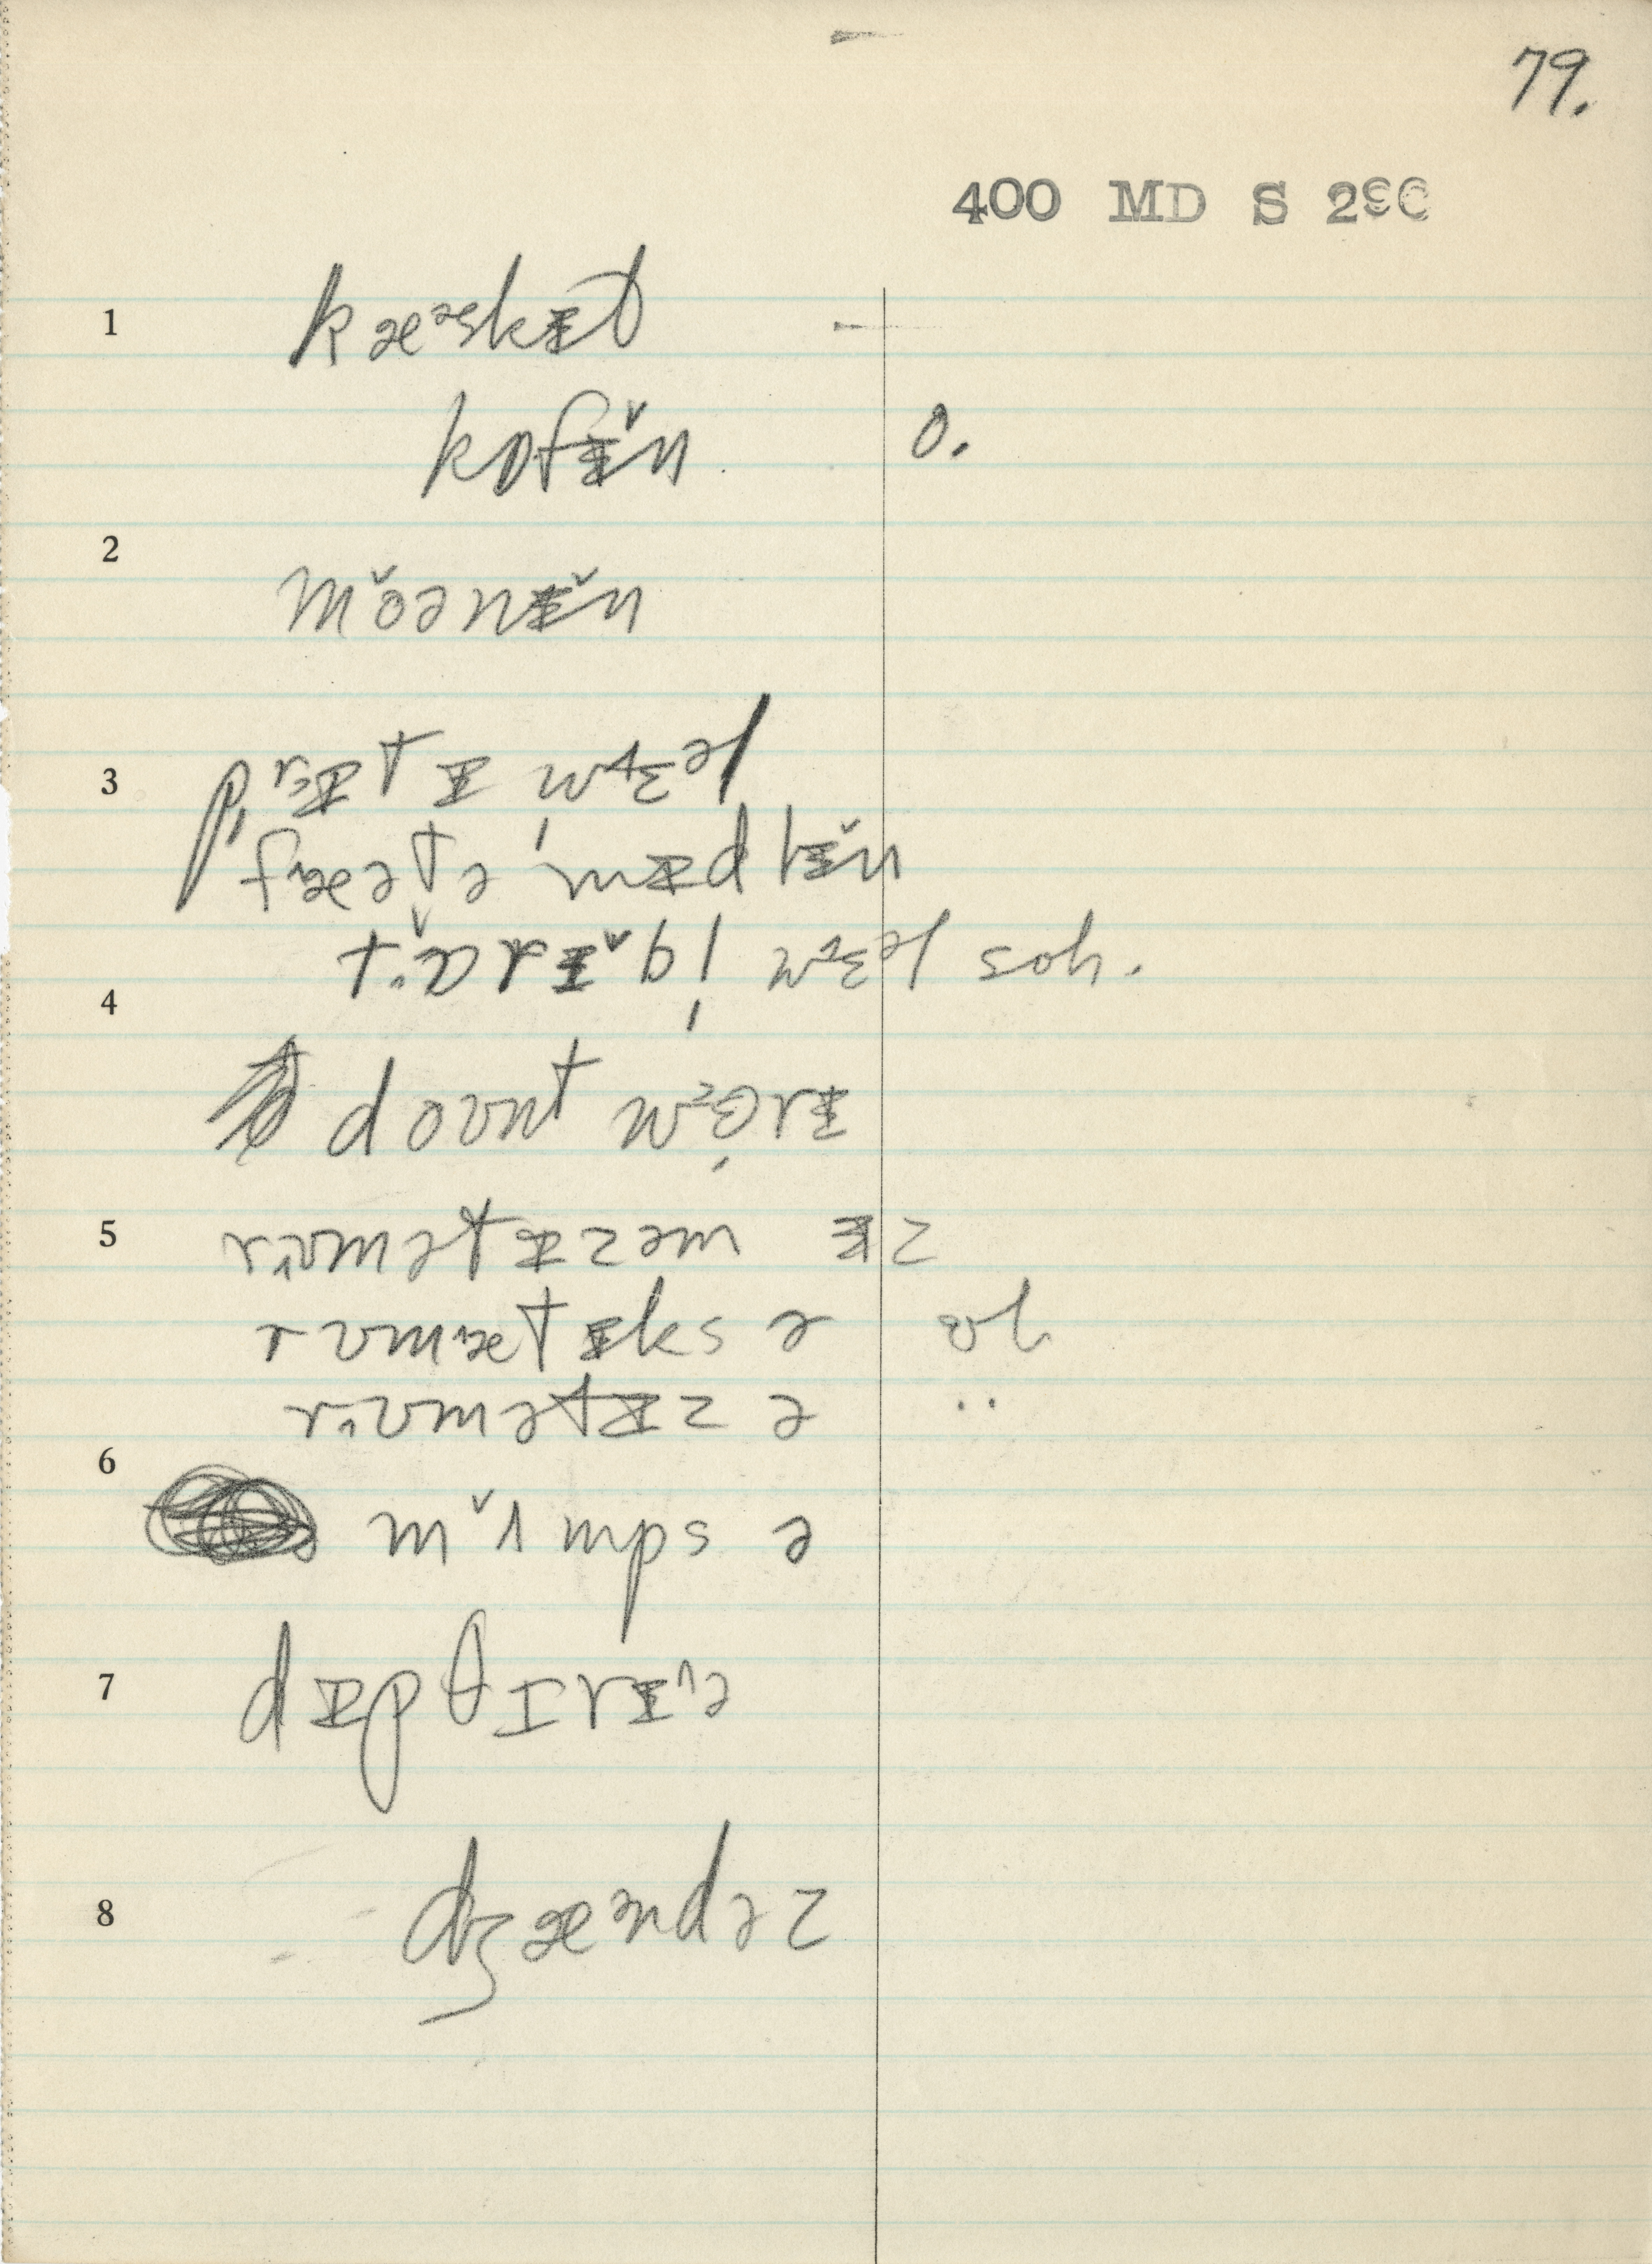 79.
400 MD S 290
1 kæᵊskɪ̵t
kɒfɪ̵̌n o.
2 mǒənɪ̵̌n
3 prɪ̵tɪ wɛəl
fæətə mɪ̵dlɪ̵̌n
tɒ̌rɪ̵̌bl wɛəl soh.
4 doʊnt wɜrɪ̵
5 rʊmətɪ̵zəm ɪ̵z
rumætɪ̵ks ə
rʊmətɪ̵z ə ..
6 mʌ̌mps ə
7 dɪ̵pθɪrɪ̵ə
8 dʒæᵊndəz